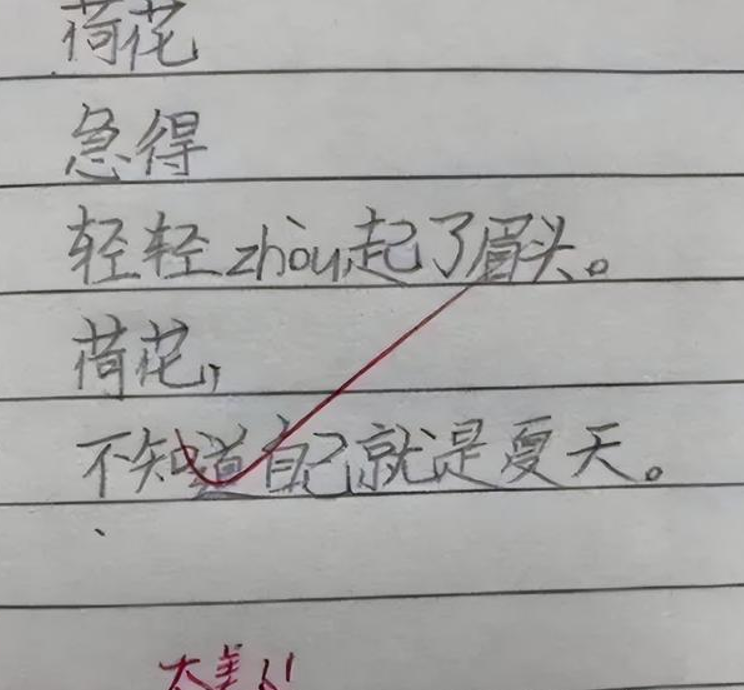 荷花
急得
轻轻zhòu起了眉头。
荷花，
不知道自己就是夏天。
太美了!